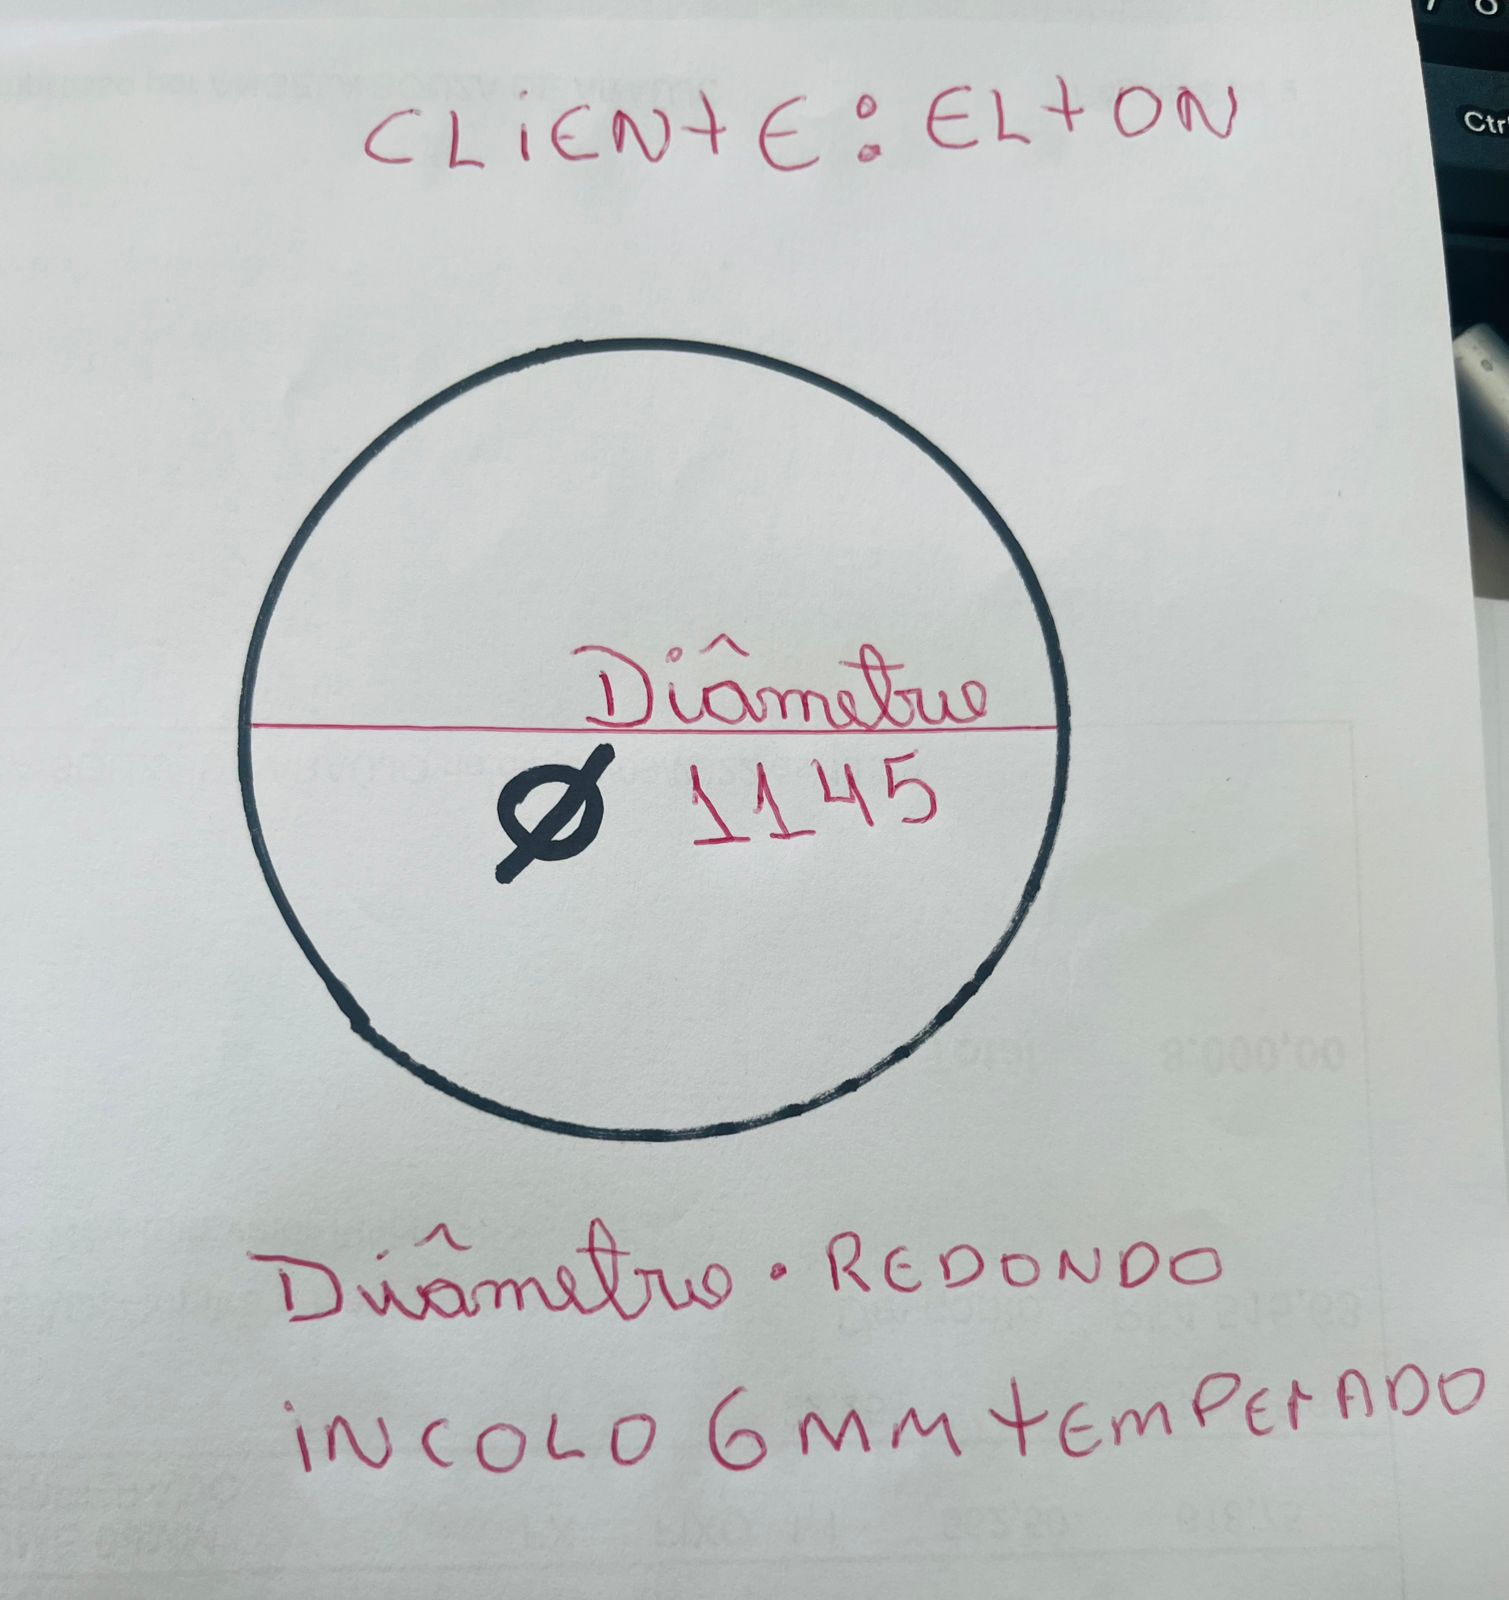 CLiENTE: ELTON
Diâmetro
Ø 1145
Diâmetro. REDONDO
iNCOLO 6 MM TEMPERADO
Ctr